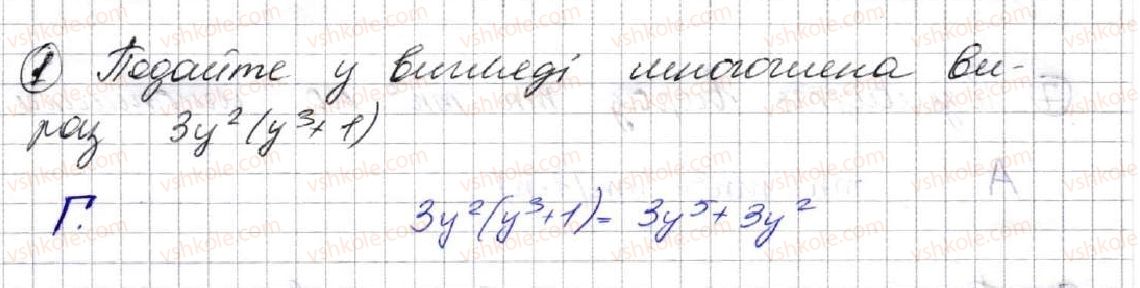 1 Подайте у вигляді многочлена ви-
раз 3y²(y³+1)
Г. 3y²(y³+1)= 3y⁵+3y²